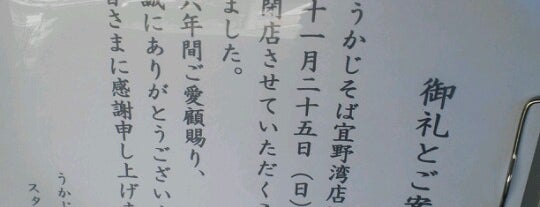 御礼とご案
うかじそば宜野湾店
十一月二十五日（日）
閉店させていただくこ
ました。
八年間ご愛顧賜り、
誠にありがとうござい
皆さまに感謝申し上げま
うかじ
スタ